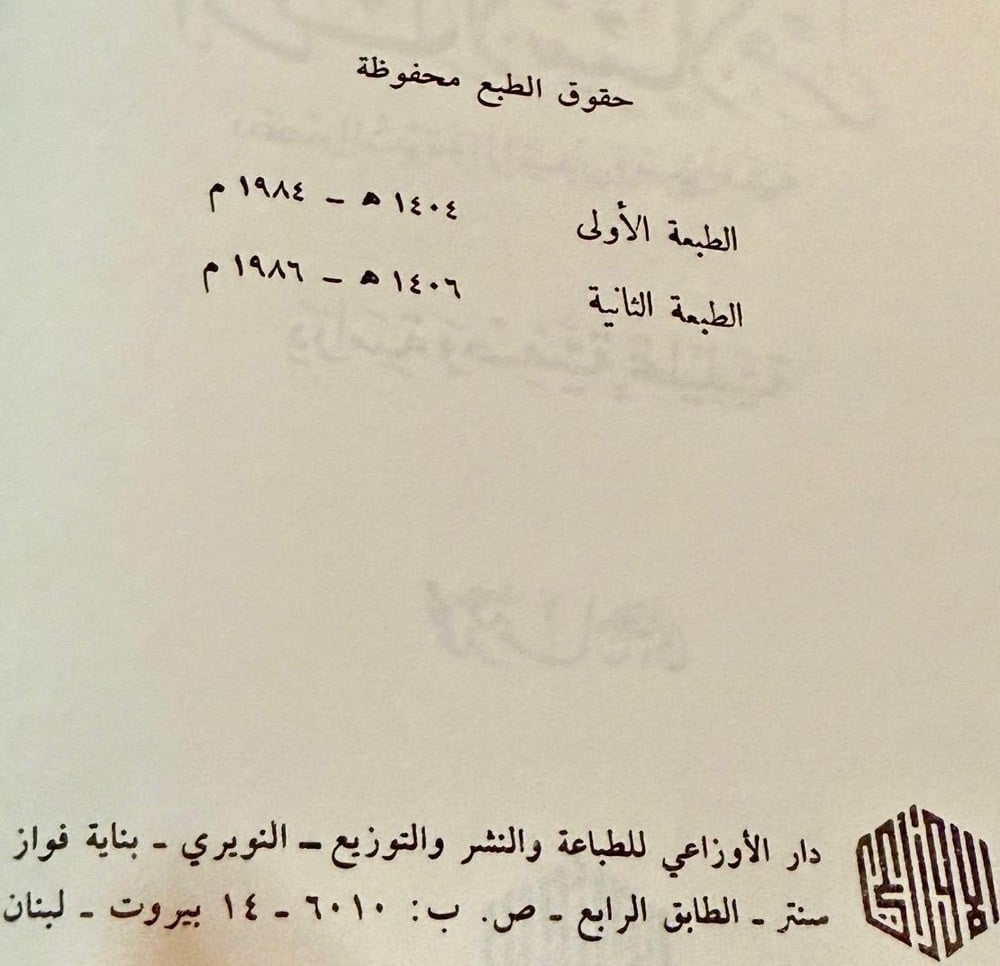 حقوق الطبع محفوظة
الطبعة الأولى ١٤٠٤ هـ - ١٩٨٤ م
الطبعة الثانية ١٤٠٦ هـ - ١٩٨٦ م
دار الأوزاعي للطباعة والنشر والتوزيع - النويري - بناية فواز
سنتر - الطابق الرابع - ص. ب: ٦٠١٠ - ١٤ بيروت - لبنان